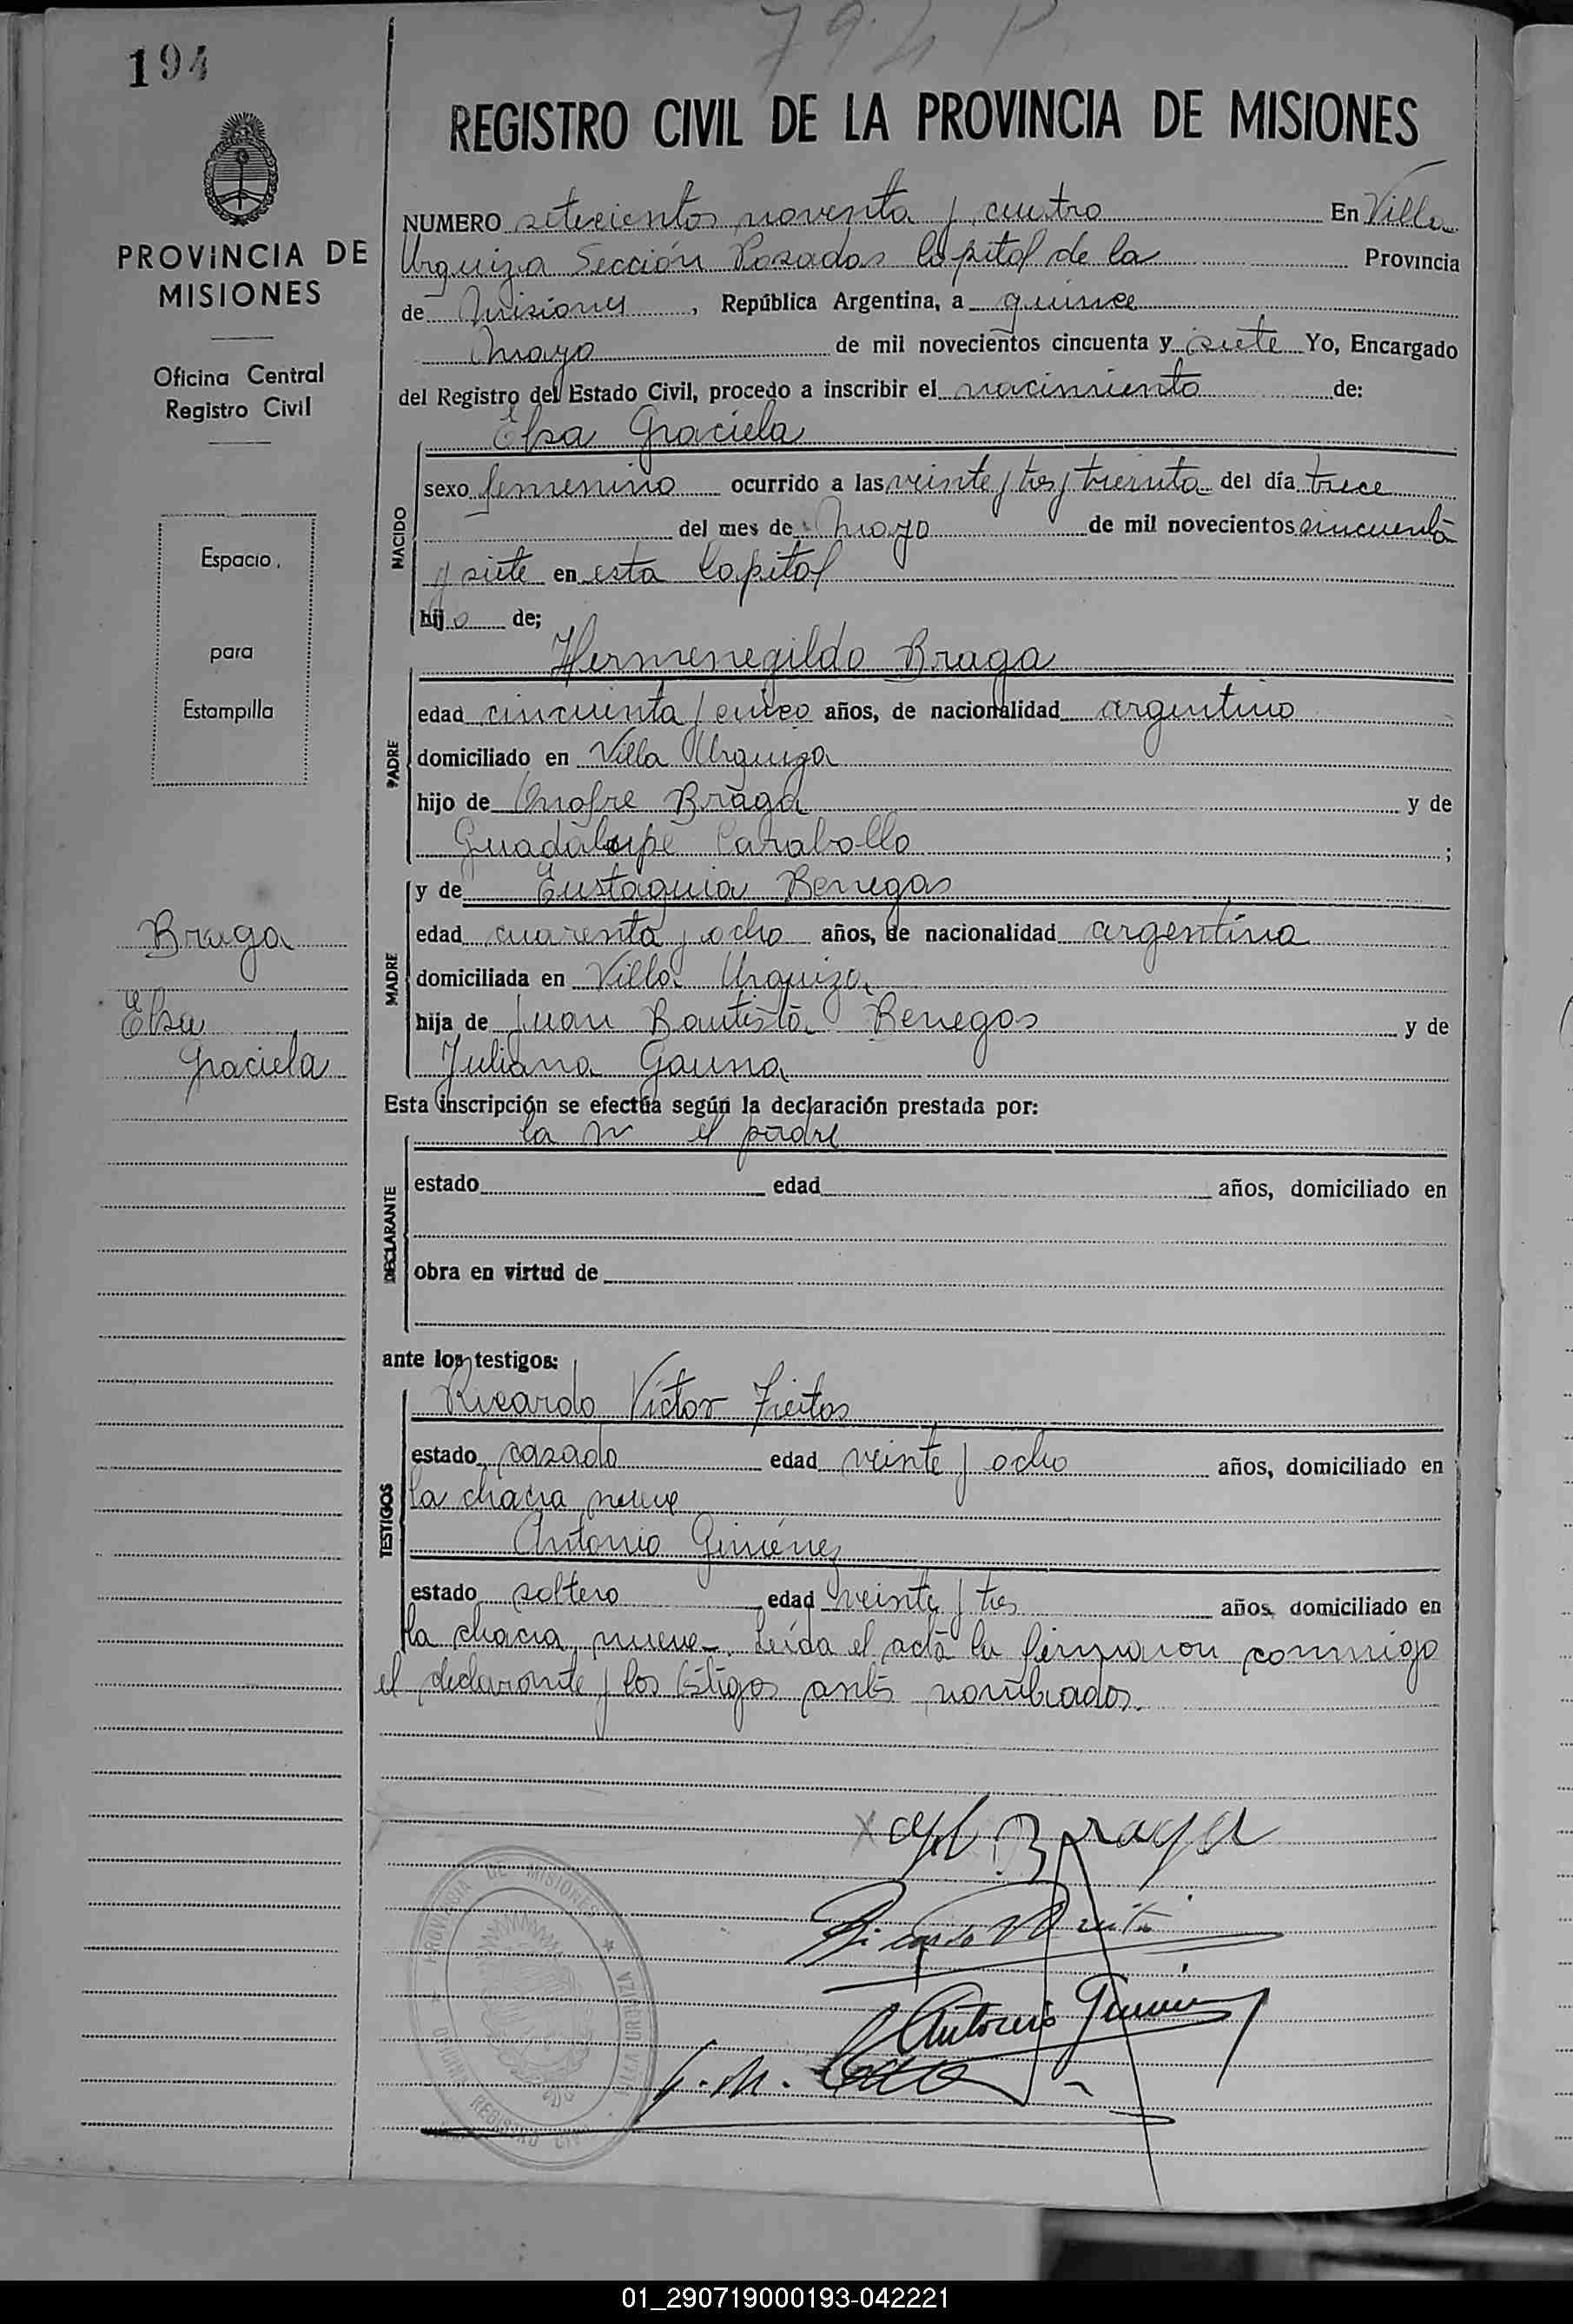 794 P
194
REGISTRO CIVIL DE LA PROVINCIA DE MISIONES
PROVINCIA DE
MISIONES
Oficina Central
Registro Civil
Espacio
para
Estampilla
Braga
Elsa
Graciela
NUMERO setecientos noventa y cuatro En Villa
Urquiza Sección Posadas Capital de la Provincia
de Misiones, República Argentina, a quince
Mayo de mil novecientos cincuenta y siete Yo, Encargado
del Registro del Estado Civil, procedo a inscribir el nacimiento de:
Elsa Graciela
NACIDO
sexo femenino ocurrido a las veinte y tres y treinta del día trece
del mes de Mayo de mil novecientos cincuenta
y siete en esta Capital
hija de;
Hermenegildo Braga
PADRE
edad cincuenta y cinco años, de nacionalidad argentino
domiciliado en Villa Urquiza
hijo de Onofre Braga y de
Guadalupe Caraballo ;
MADRE
y de Eustaquia Benegas
edad cuarenta y ocho años, de nacionalidad argentina
domiciliada en Villa Urquiza
hija de Juan Bautista Benegas y de
Juliana Gauna
Esta inscripción se efectúa según la declaración prestada por:
la m el padre
DECLARANTE
estado edad años, domiciliado en
obra en virtud de
ante los testigos:
TESTIGOS
Ricardo Victor Freitas
estado casado edad veinte y ocho años, domiciliado en
la chacra nueve
Antonio Giménez
estado soltero edad veinte y tres años, domiciliado en
la chacra nueve. Leída el acta la firmaron conmigo
el declarante y los testigos antes nombrados.
Braga
Antonio Gimenez
PROVINCIA DE MISIONES ★ VILLA URQUIZA
REGISTRO CIVIL
01_290719000193-042221